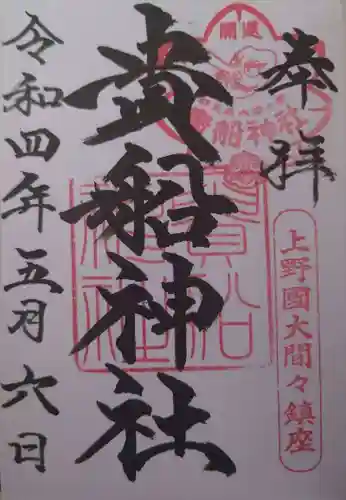 奉拝
開運
貴船神社
上野國大間々鎮座
貴船神社
令和四年五月六日